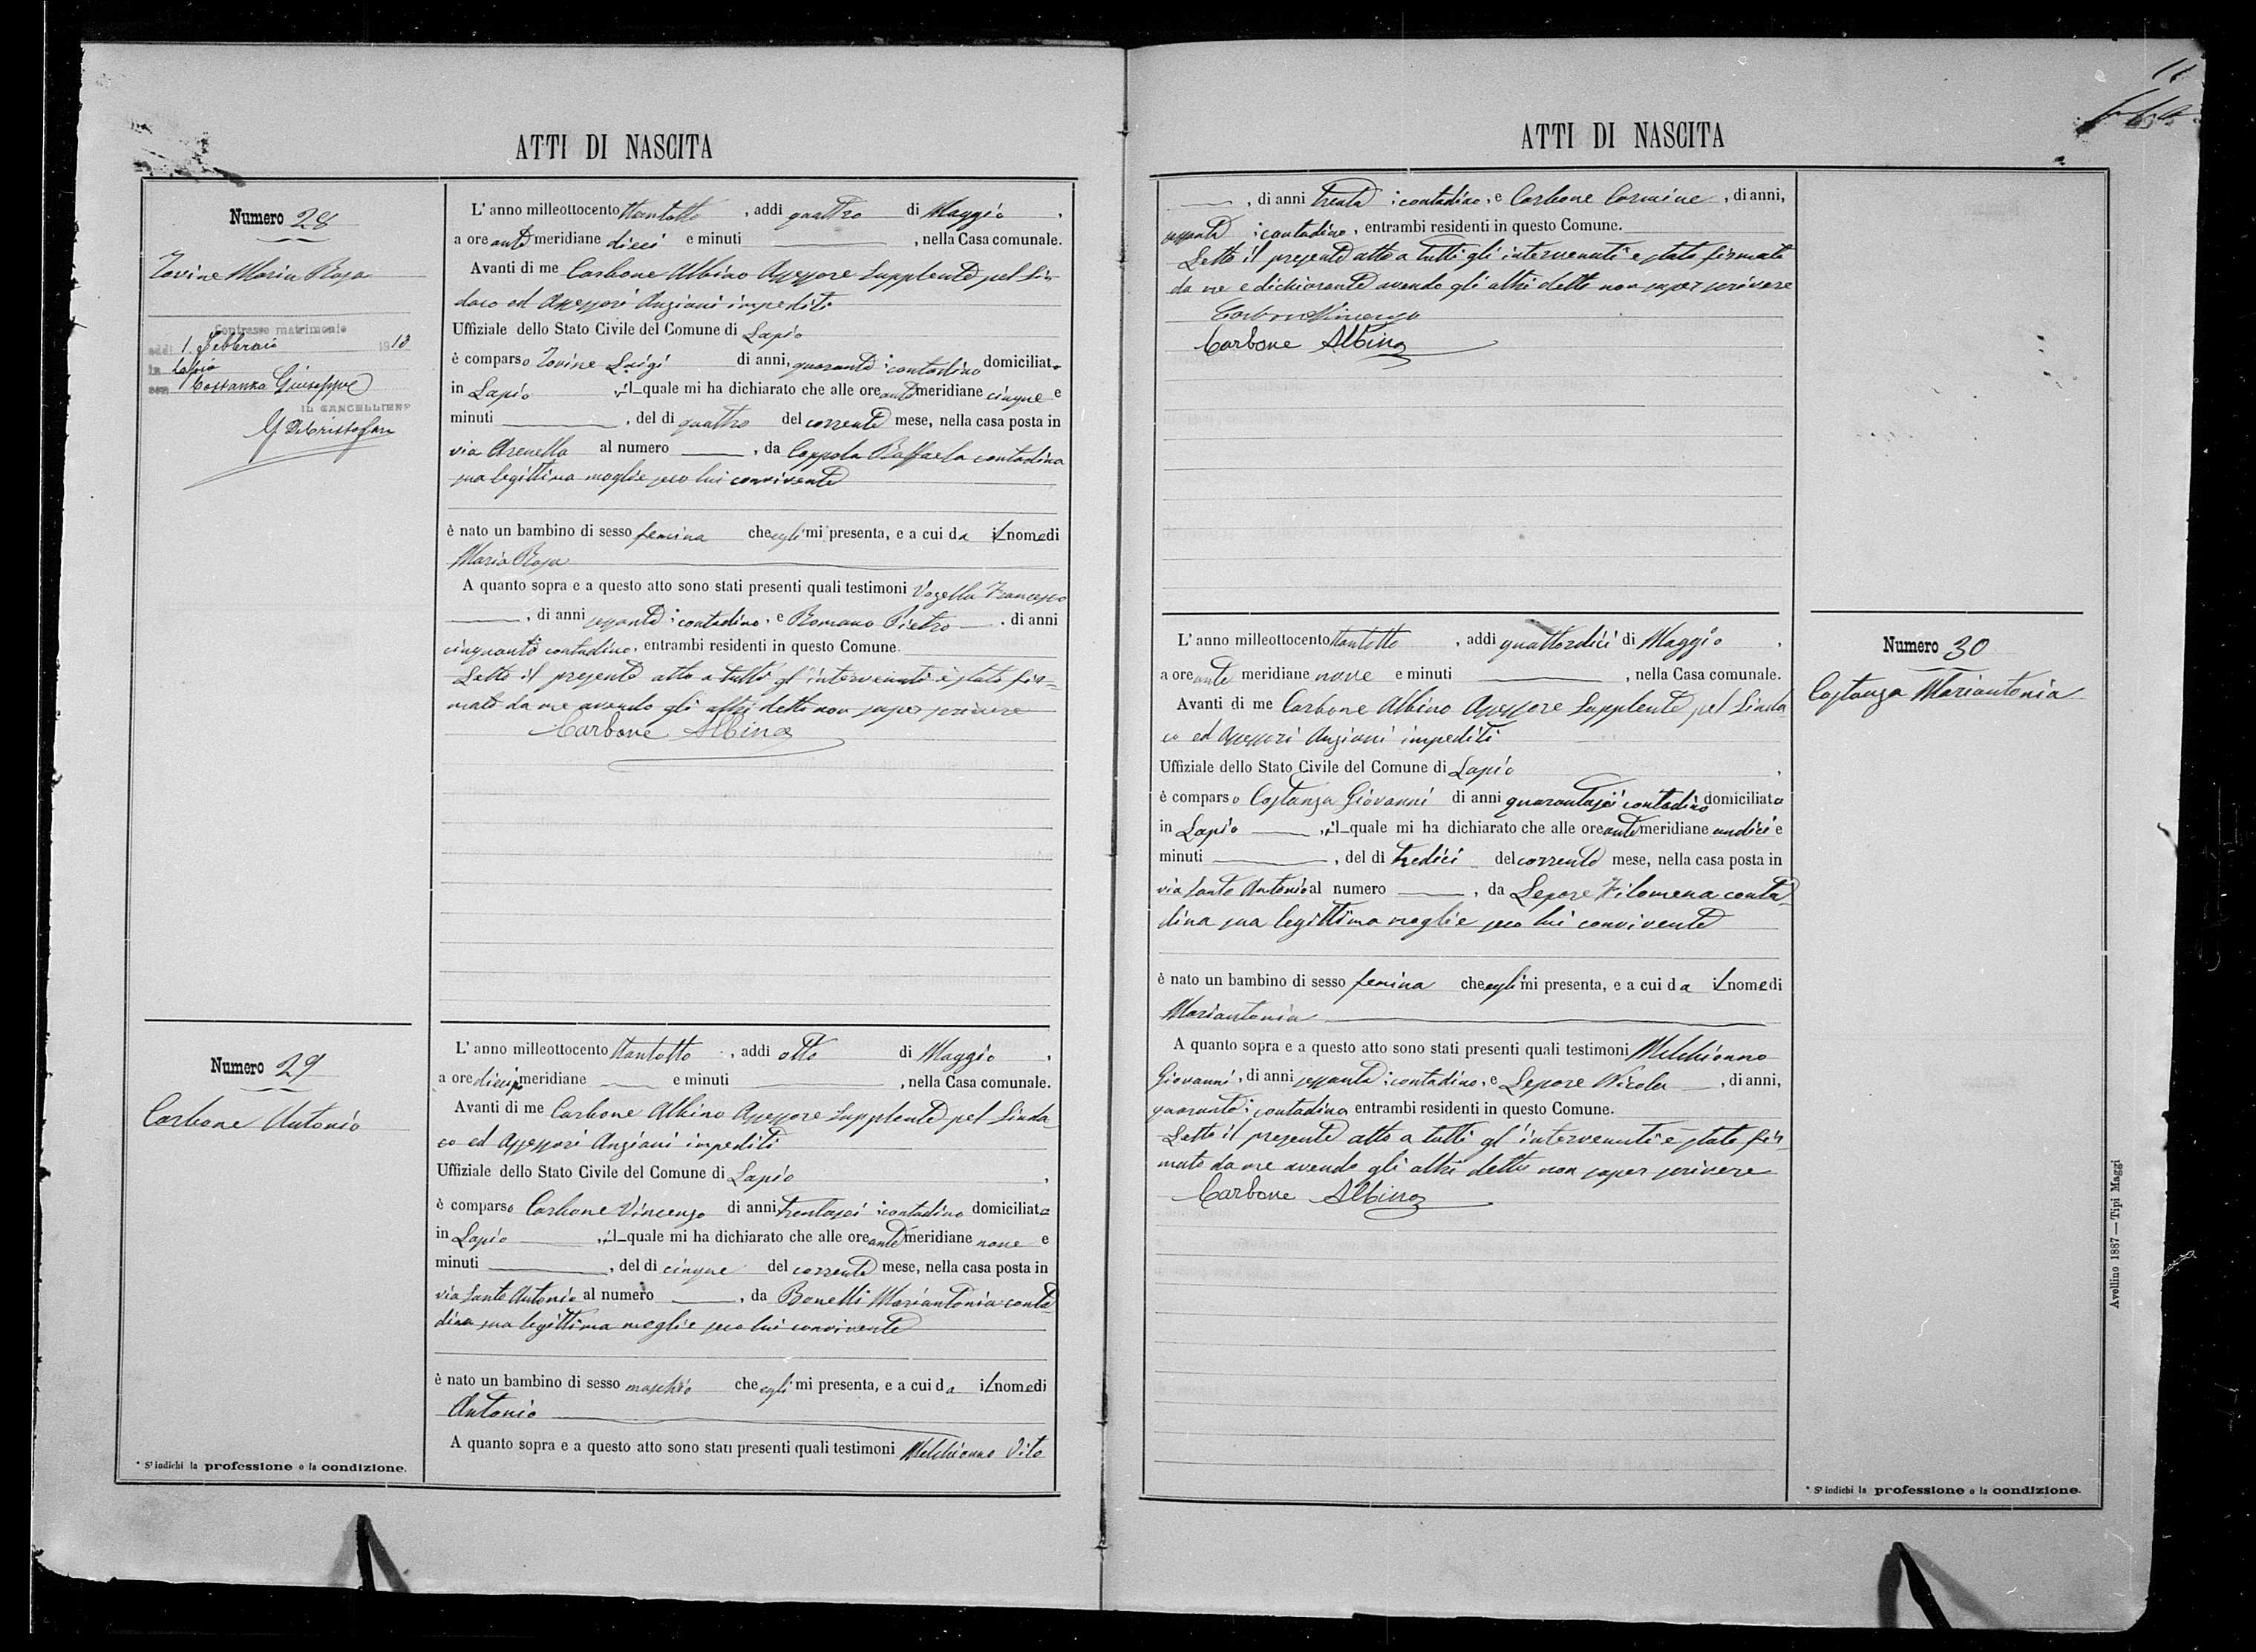 ATTI DI NASCITA
Numero 28
Iovine Maria Rosa
Contrasse matrimonio
addì 1. Febbraio 1910
in Lapio
con Costanza Giuseppe
IL CANCELLIERE
L' anno milleottocento ttantotto, addì quattro di Maggio,
a ore ante meridiane dieci e minuti ——, nella Casa comunale.
Avanti di me Carbone Albino Assessore Supplente pel Sin-
daco ed Assessori Anziani impediti
Uffiziale dello Stato Civile del Comune di Lapio
è comparso Iovine Luigi di anni, quaranta contadino domiciliato
in Lapio, il quale mi ha dichiarato che alle ore ante meridiane cinque e
minuti ——, del dì quattro del corrente mese, nella casa posta in
via Arenella al numero ——, da Coppola Raffaela contadina
sua legittima moglie seco lui convivente
è nato un bambino di sesso femina che egli mi presenta, e a cui dà il nome di
Maria Rosa
A quanto sopra e a questo atto sono stati presenti quali testimoni Vozella Francesco
——, di anni sessanta contadino, e Romano Pietro —, di anni
cinquanta contadino, entrambi residenti in questo Comune.
Letto il presente atto a tutti gl' intervenuti è stato fir-
mato da me avendo gli altri detto non saper scrivere
Carbone Albino
Numero 29
Carbone Antonio
L' anno milleottocento ttantotto, addì otto di Maggio,
a ore dieci pomeridiane —— e minuti ——, nella Casa comunale.
Avanti di me Carbone Albino Assessore Supplente pel Sinda
co ed Assessori Anziani impediti
Uffiziale dello Stato Civile del Comune di Lapio,
è comparso Carbone Vincenzo di anni trentasei contadino domiciliato
in Lapio, il quale mi ha dichiarato che alle ore ante meridiane nove e
minuti ——, del dì cinque del corrente mese, nella casa posta in
via Santo Antonio al numero ——, da Bonelli Mariantonia conta
dina sua legittima moglie seco lui convivente
è nato un bambino di sesso maschio che egli mi presenta, e a cui dà il nome di
Antonio
A quanto sopra e a questo atto sono stati presenti quali testimoni Melchionno Vito
* S' indichi la professione o la condizione.
ATTI DI NASCITA
11
——, di anni trenta contadino, e Carbone Carmine, di anni,
sessanta contadino, entrambi residenti in questo Comune.
Letto il presente atto a tutti gli intervenuti è stato firmato
da me e dichiarante avendo gli altri detto non saper scrivere
Carbone Vincenzo
Carbone Albino
Numero 30
Costanza Mariantonia
L' anno milleottocento ttantotto, addì quattordici di Maggio,
a ore ante meridiane nove e minuti ——, nella Casa comunale.
Avanti di me Carbone Albino Assessore Supplente pel Sinda
co ed Assessori Anziani impediti
Uffiziale dello Stato Civile del Comune di Lapio,
è comparso Costanza Giovanni di anni quarantasei contadino domiciliato
in Lapio ——, il quale mi ha dichiarato che alle ore ante meridiane undici e
minuti ——, del dì tredici del corrente mese, nella casa posta in
via Santo Antonio al numero ——, da Lepore Filomena conta-
dina sua legittima moglie seco lui convivente
è nato un bambino di sesso femina che egli mi presenta, e a cui dà il nome di
Mariantonia
A quanto sopra e a questo atto sono stati presenti quali testimoni Melchionno
Giovanni, di anni sessanta contadino, e Lepore Nicola ——, di anni,
quaranta contadino entrambi residenti in questo Comune.
Letto il presente atto a tutti gl' intervenuti è stato fir-
mato da me avendo gli altri detto non saper scrivere
Carbone Albino
* S' indichi la professione o la condizione.
Avellino 1887 — Tipi Maggi